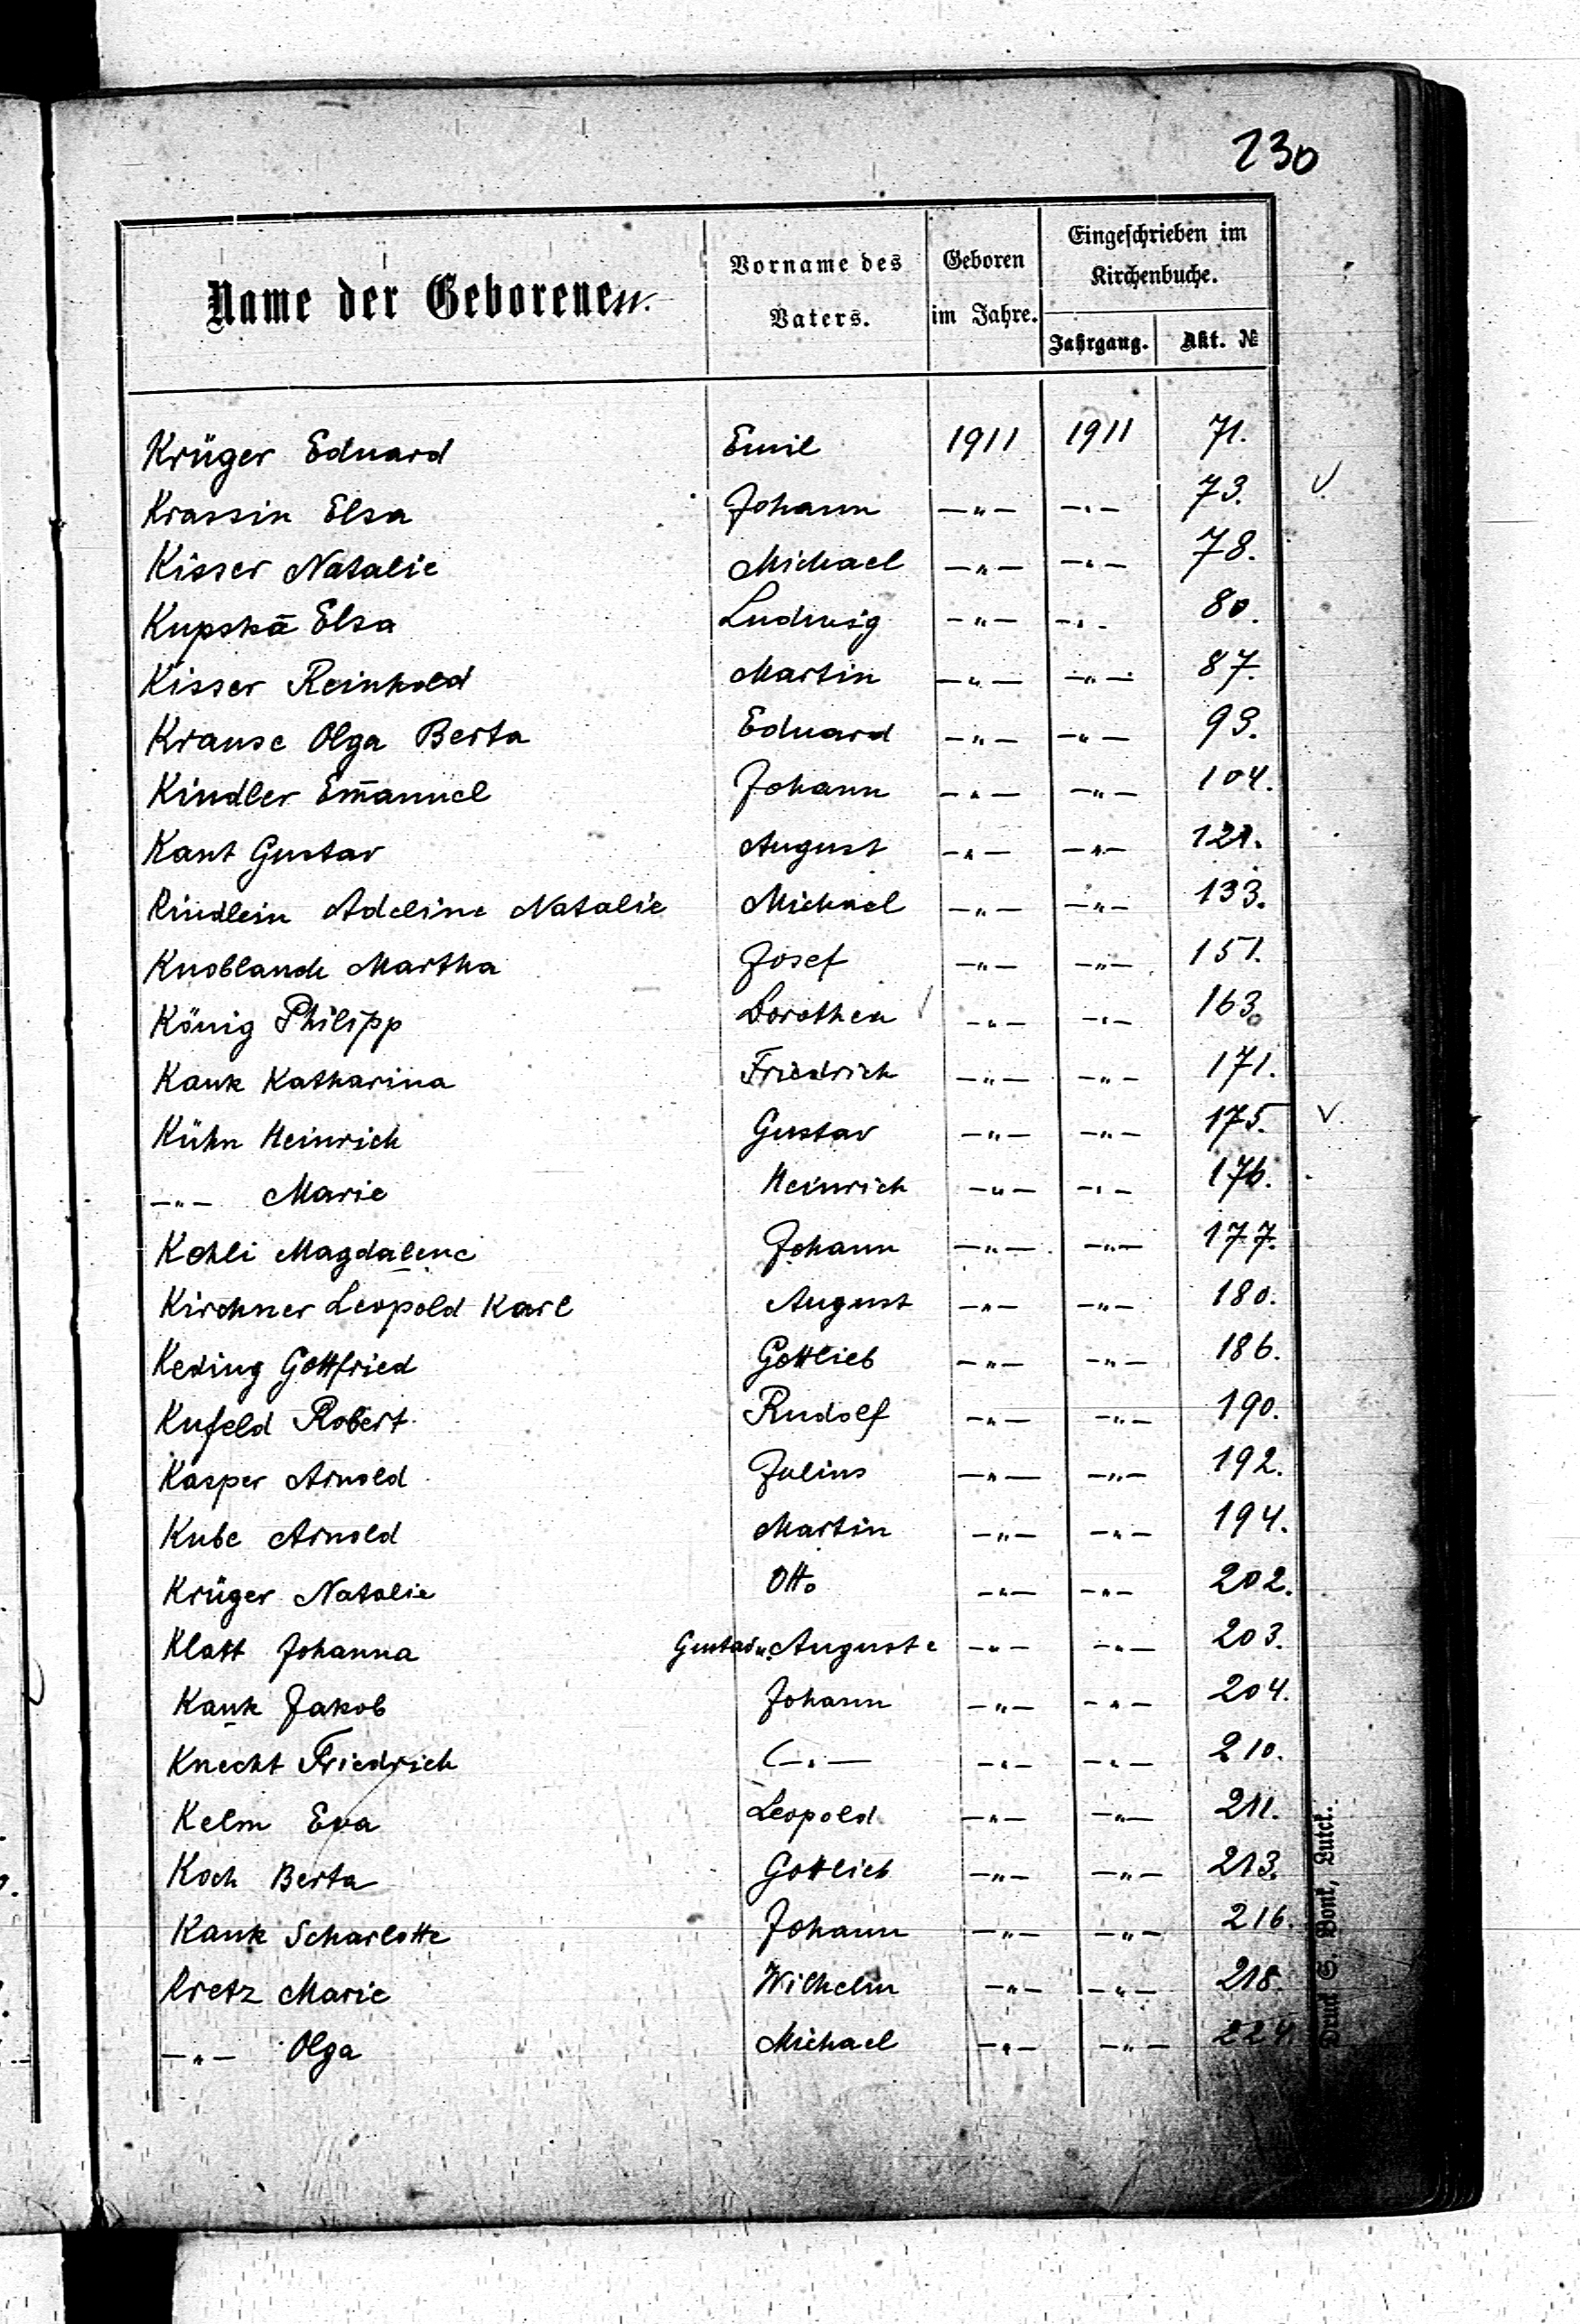 230
Name der Geborenen.
Vorname des Vaters.
Geboren im Jahre.
Eingeschrieben im Kirchenbuche.
Jahrgang.
Akt. №
Krüger Eduard Emil 1911 1911 71.
Krassin Elsa Johann —„— —„— 73. V.
Kisser Natalie Michael —„— —„— 78.
Kupskā Elsa Ludwig —„— —„— 80.
Kisser Reinhold Martin —„— —„— 87.
Krause Olga Berta Eduard —„— —„— 93.
Kindler Em̄anuel Johann —„— —„— 104.
Kant Gustav August —„— —„— 121.
Kindlein Adeline Natalie Michael —„— —„— 133.
Knoblauch Martha Josef —„— —„— 151.
König Philipp Dorothea —„— —„— 163.
Kauk Katharina Friedrich —„— —„— 171.
Kühn Heinrich Gustav —„— —„— 175. V.
—„— Marie Heinrich —„— —„— 176.
Kohli Magdalene Johann —„— —„— 177.
Kirchner Leopold Karl August —„— —„— 180.
Keding Gottfried Gottlieb —„— —„— 186.
Kufeld Robert Rudolf —„— —„— 190.
Kasper Arnold Julius —„— —„— 192.
Kube Arnold Martin —„— —„— 194.
Krüger Natalie Otto —„— —„— 202.
Klatt Johanna Gustav u. Auguste —„— —„— 203.
Kauk Jakob Johann —„— —„— 204.
Knecht Friedrich —„— —„— —„— 210.
Kelm Eva Leopold —„— —„— 211.
Koch Berta Gottlieb —„— —„— 213.
Kauk Scharlotte Johann —„— —„— 216.
Kretz Marie Wilhelm —„— —„— 218.
—„— Olga Michael —„— —„— 224.
Druck S. Bonk, Lutck.